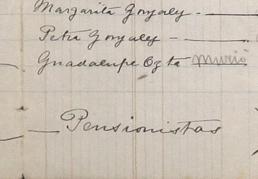 Margarita Gonzaley -
Petra Gonzaley -
Guadalupe Ozta murió
Pensionistas